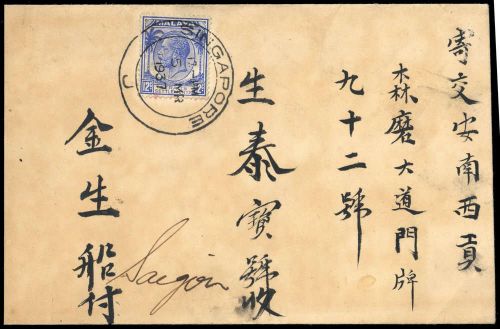 寄交安南西貢
森磨大道門牌
九十二號
生泰寶號收
金生船付
Saigon
MALAYA
12c 12c
SINGAPORE
5 MR
1937
J